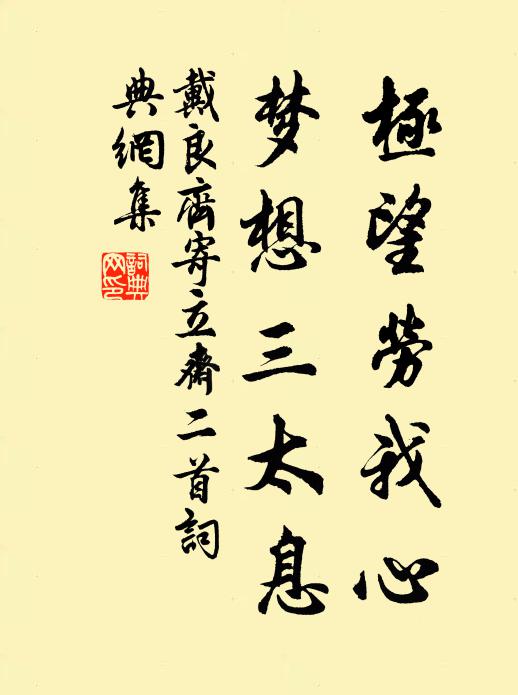 極望勞我心
梦想三太息
戴良齊寄立齋二首詞
典網集
詞典
网印